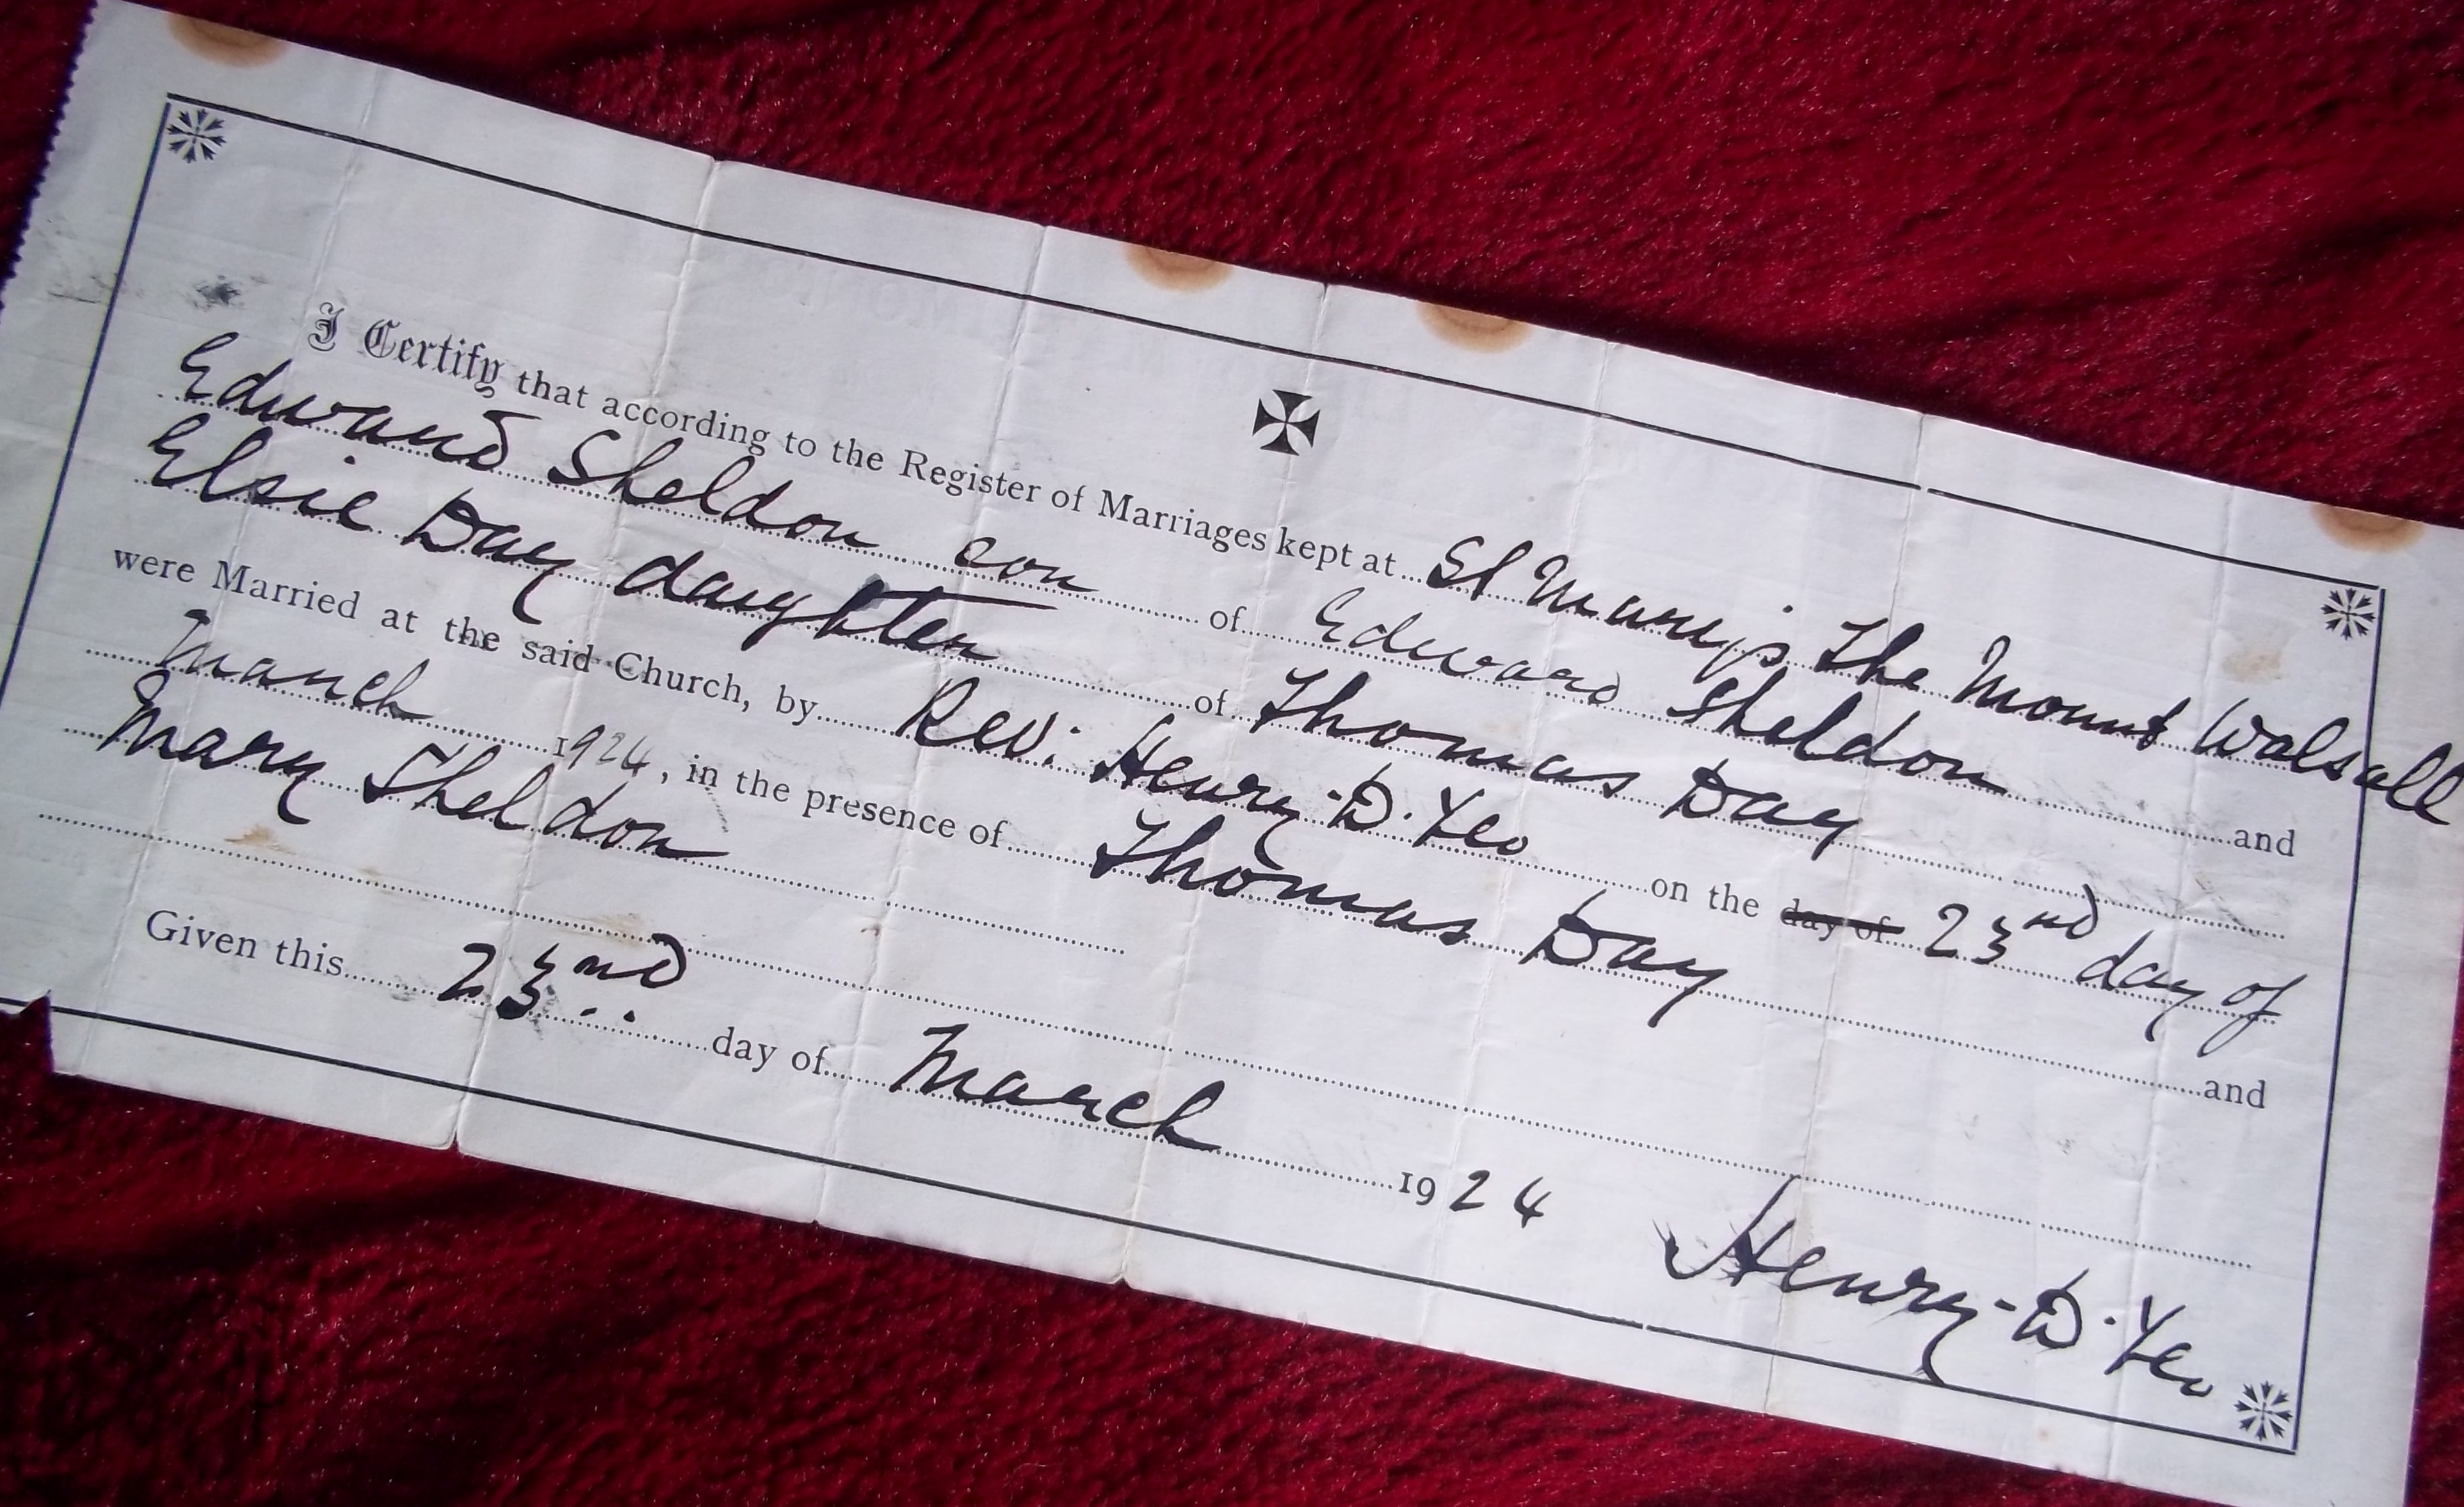 I Certify that according to the Register of Marriages kept at St Mary's The Mount Walsall
Edward Sheldon son of Edward Sheldon and
Elsie Day daughter of Thomas Day
were Married at the said Church, by Rev: Henry-D. Yeo on the day of 23nd day of
March 1924, in the presence of Thomas Day and
Mary Sheldon
Given this 23nd day of March 1924
Henry-D. Yeo